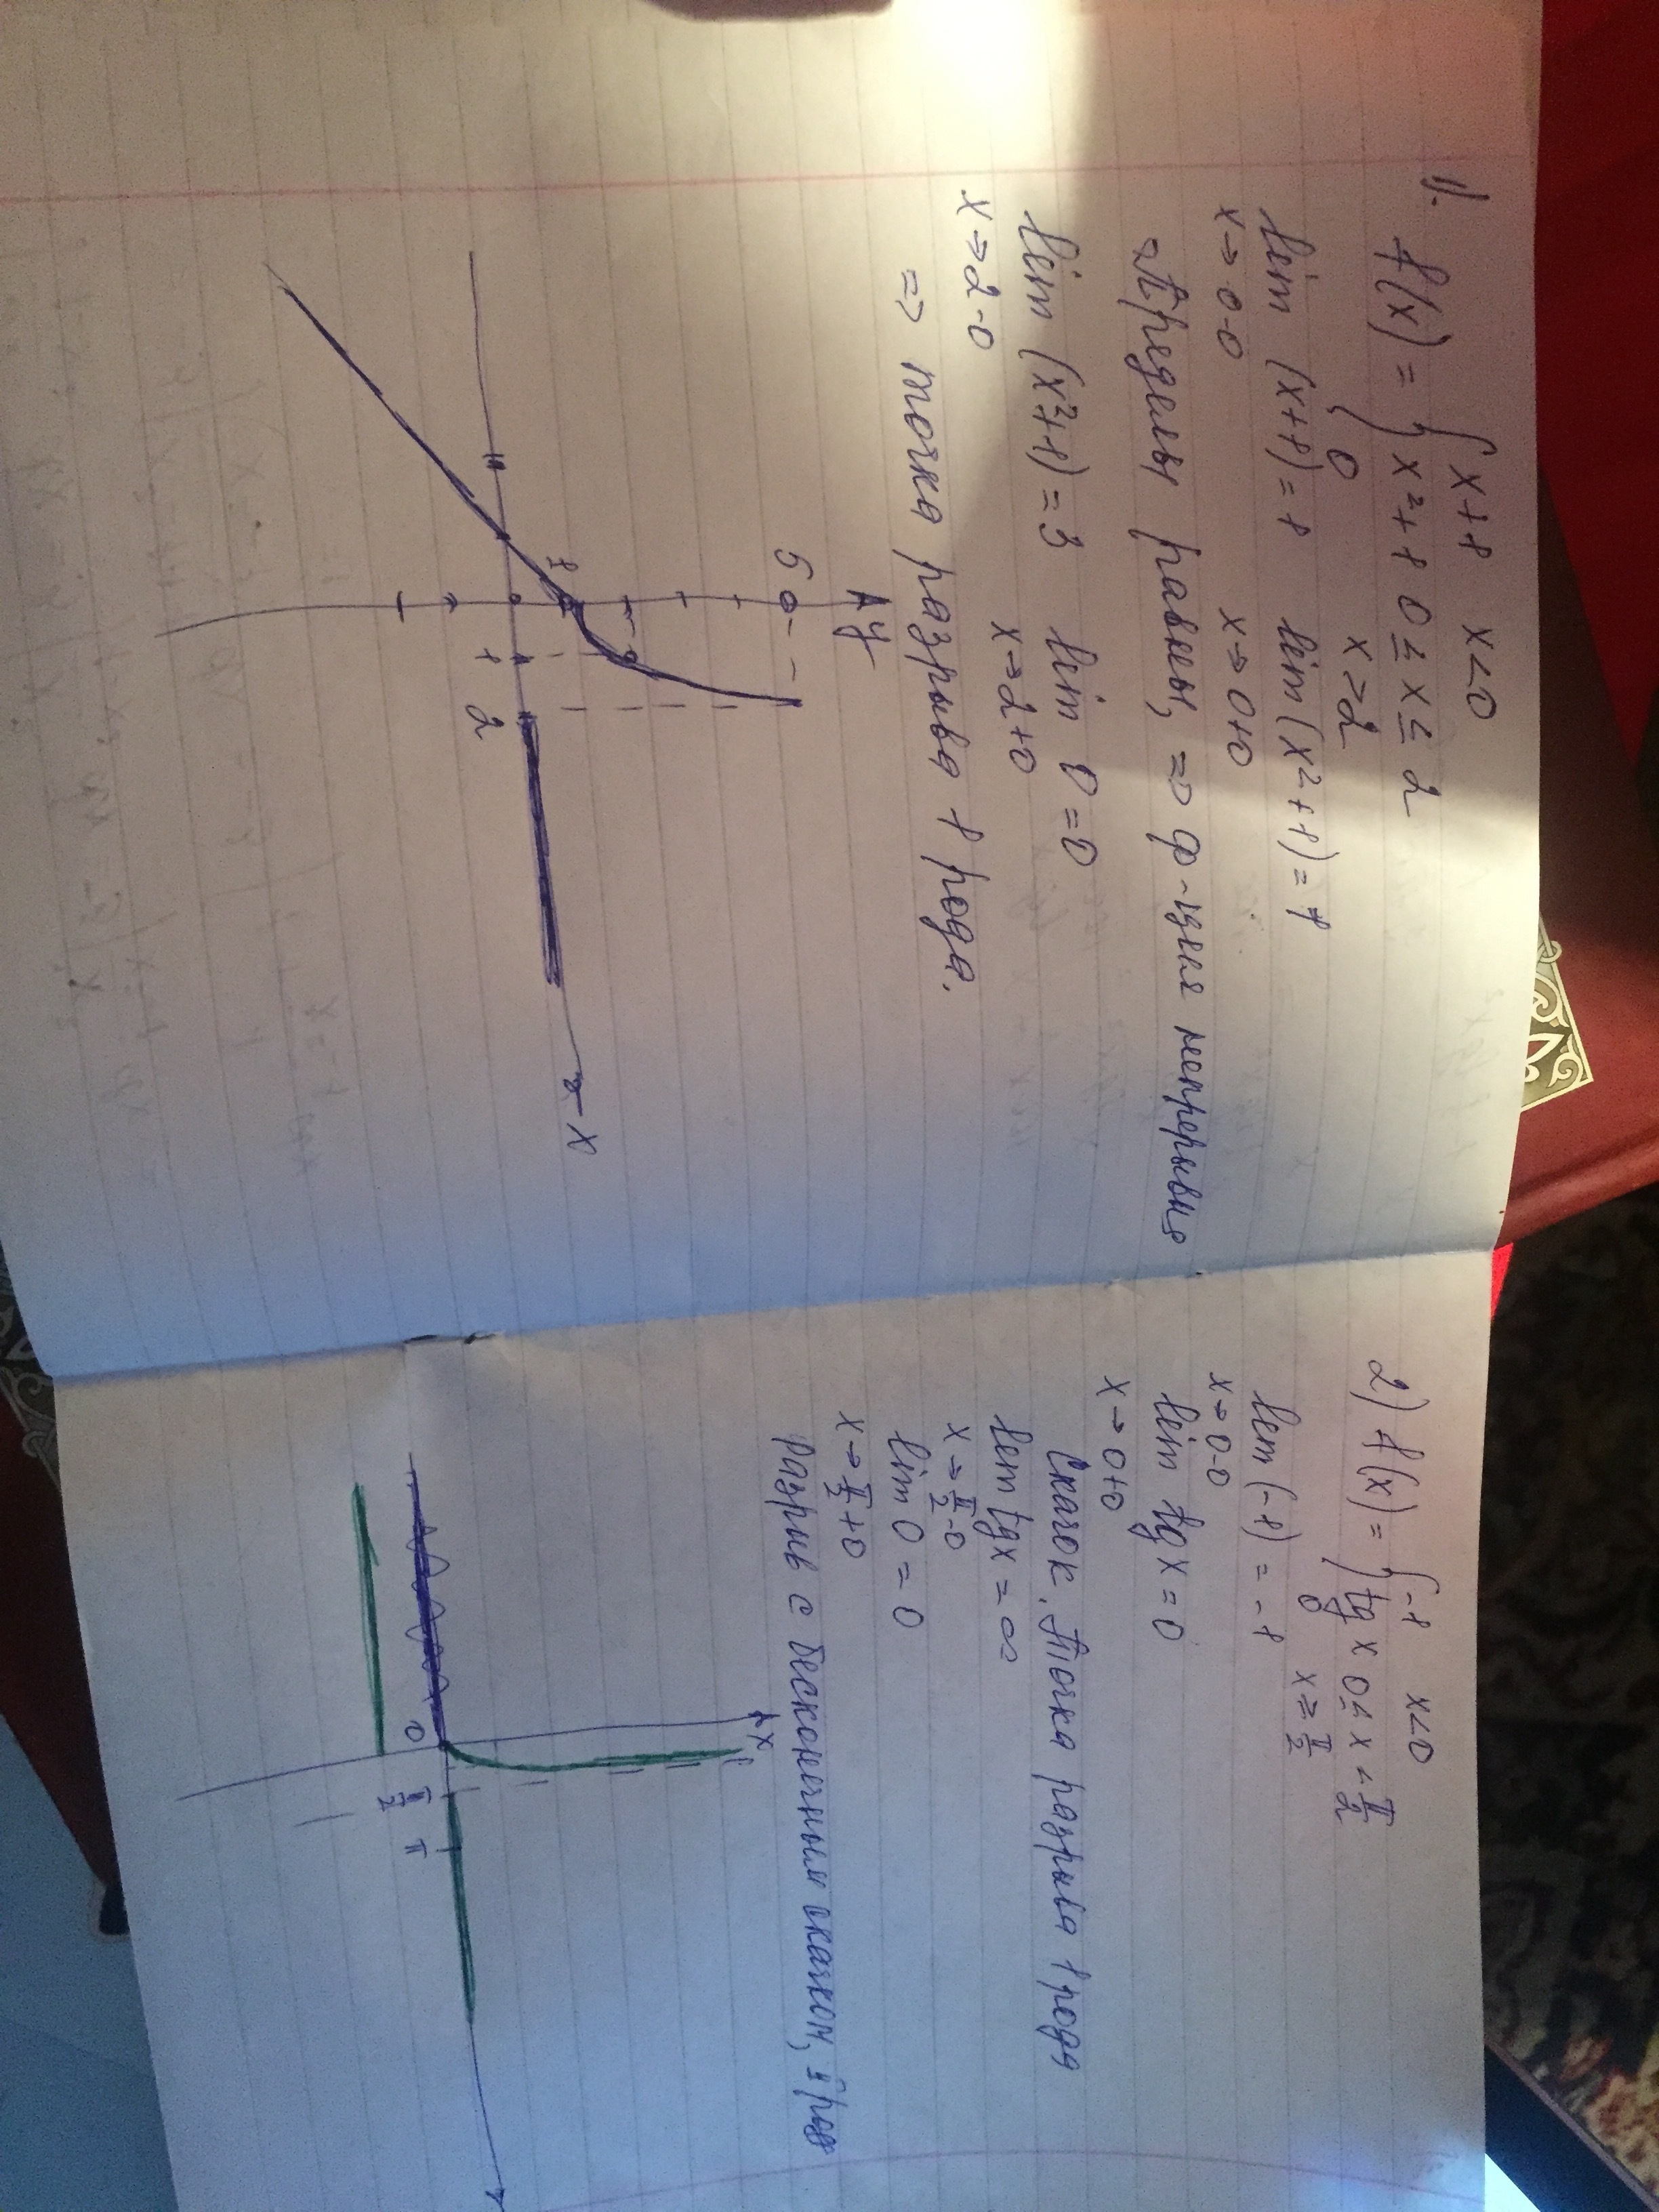 1). f(x) = { x+1 x<0
x²+1 0 ≤ x ≤ 2
0 x>2
lim (x+1) = 1 lim (x²+1) = 1
x→0-0 x→0+0
Пределы равны, => ф-ция непрерывна
lim (x²+1) = 3 lim 0 = 0
x→2-0 x→2+0
=> точка разрыва 1 рода.
y
5
1
1 2
x
2) f(x) = { -1 x<0
tg x 0 ≤ x < π/2
0 x ≥ π/2
lim (-1) = -1
x→0-0
lim tg x = 0
x→0+0
Скачок. Точка разрыва 1 рода
lim tg x = ∞
x→π/2-0
lim 0 = 0
x→π/2+0
Разрыв с бесконечным скачком,
x
0 π/2 π